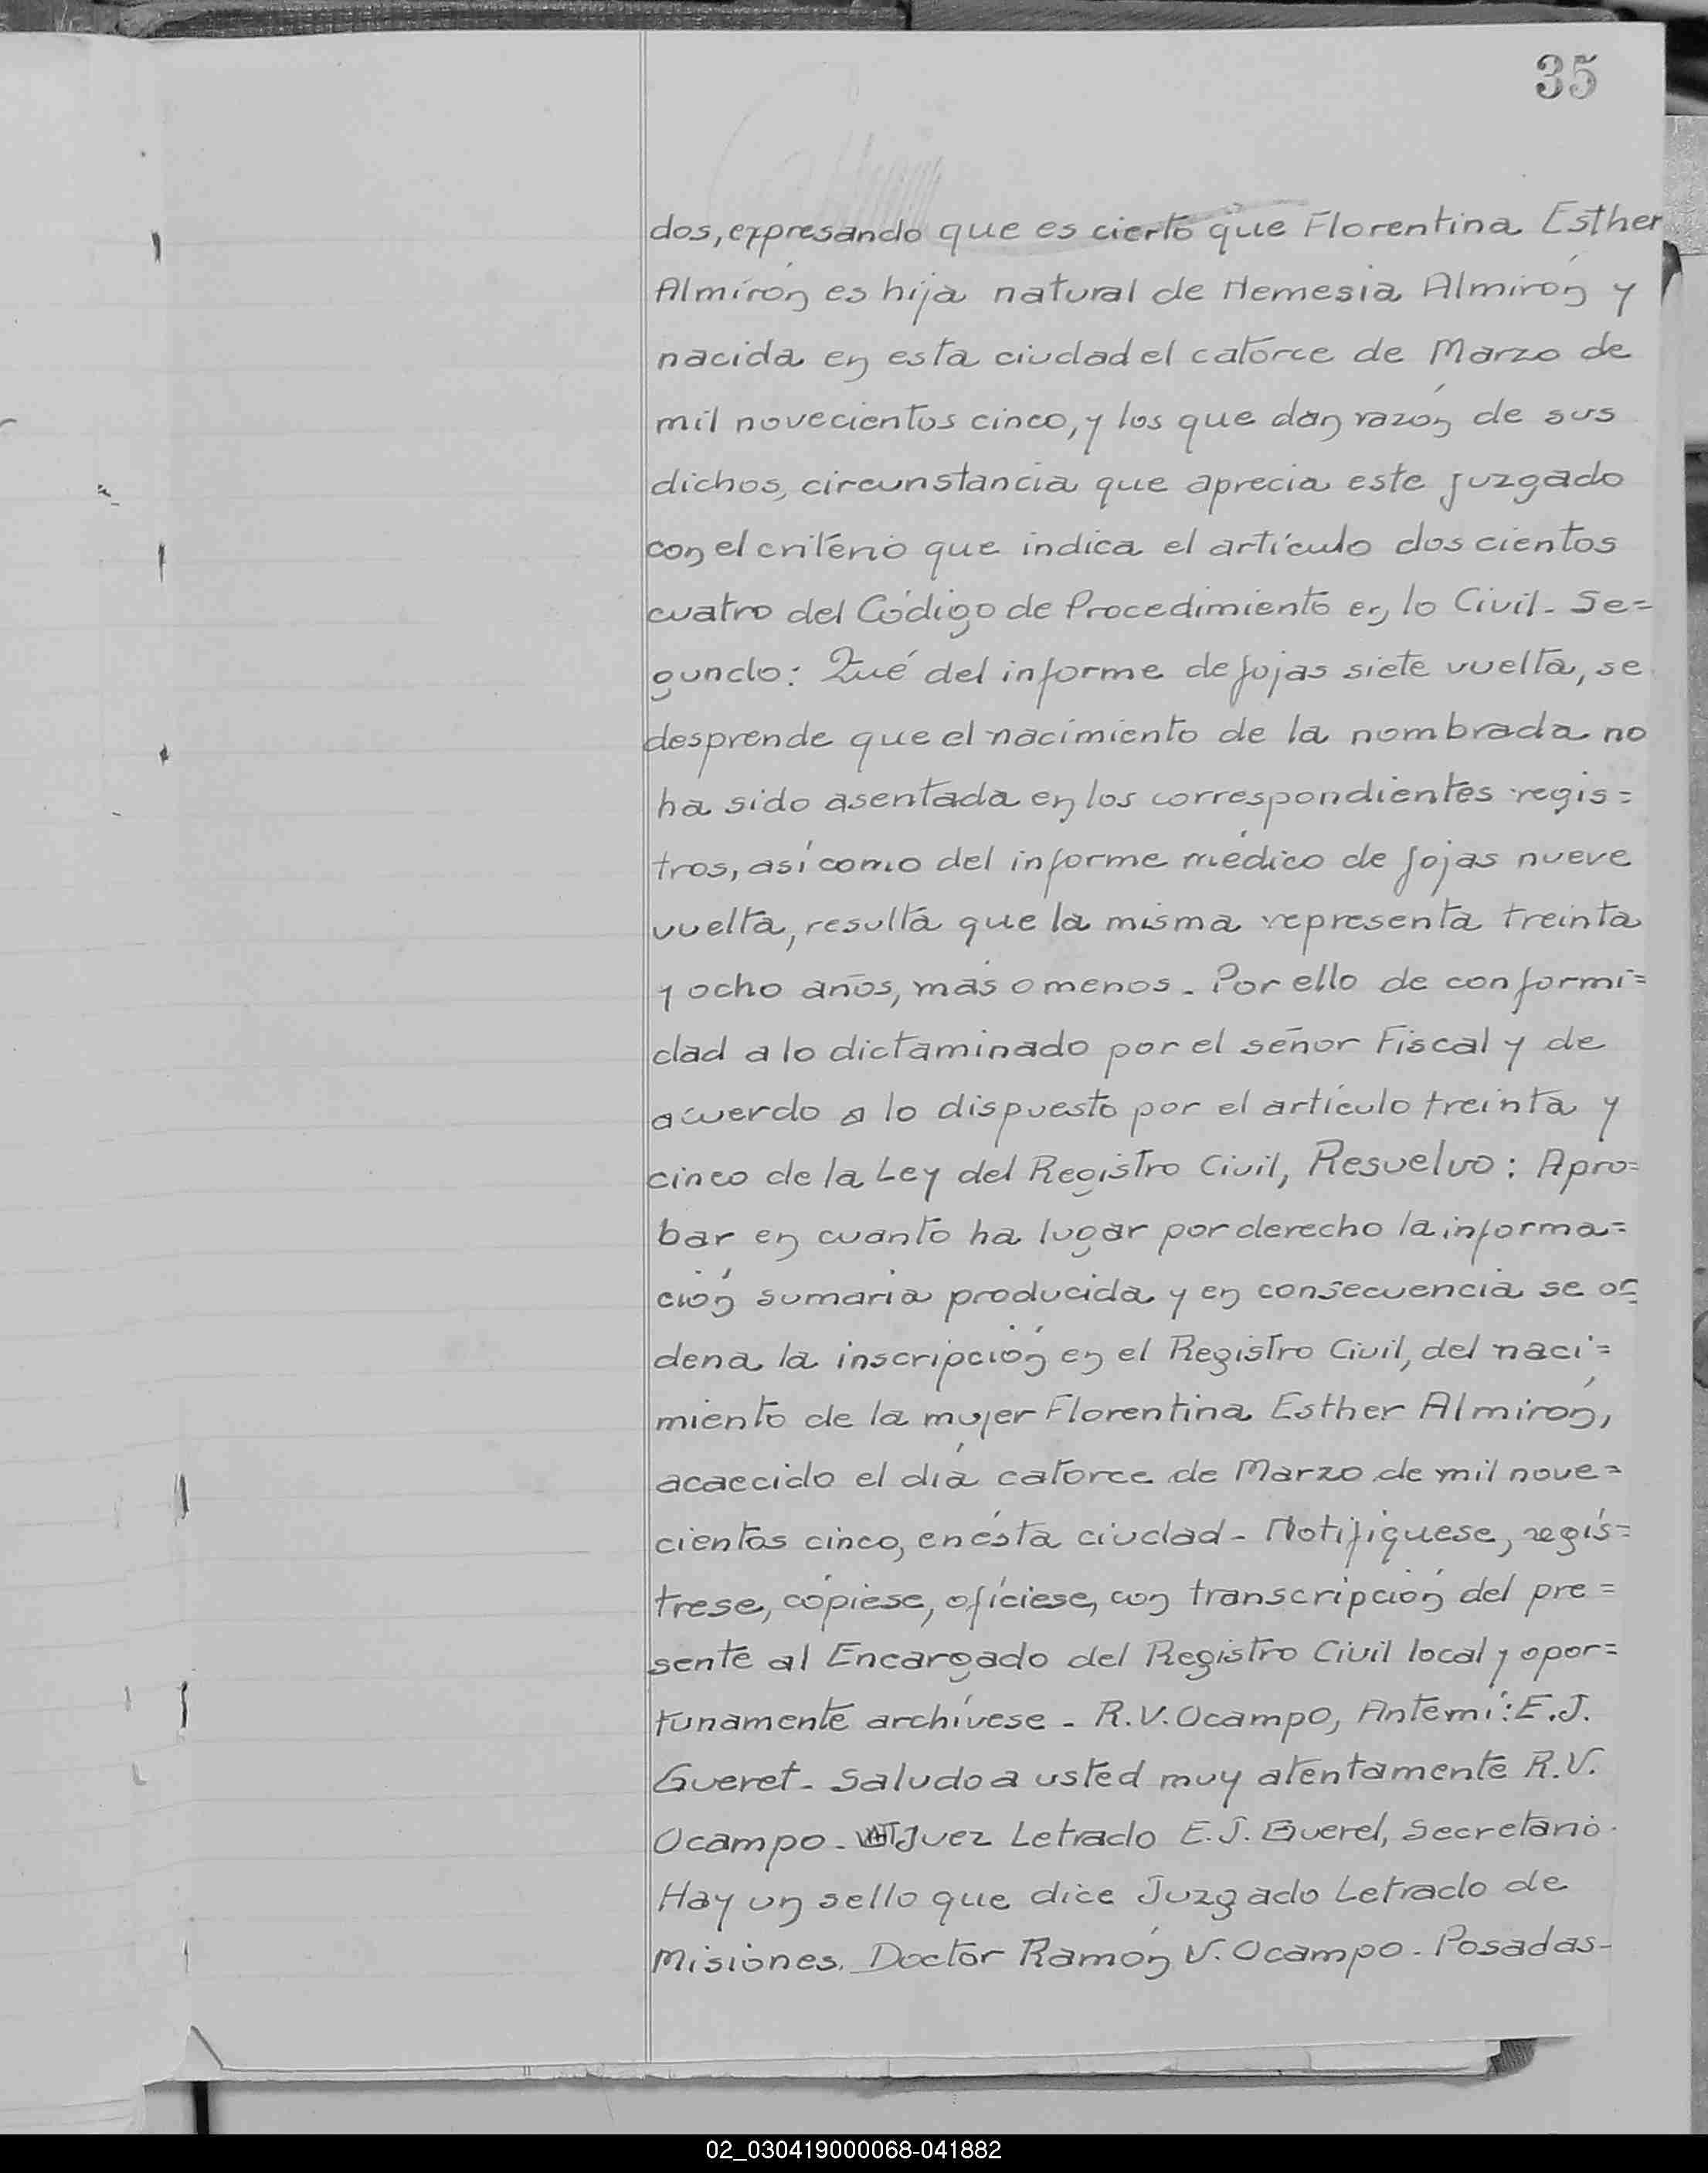 35
dos, expresando que es cierto que Florentina Esther
Almirón es hija natural de Nemesia Almirón y
nacida en esta ciudad el catorce de Marzo de
mil novecientos cinco, y los que dan razón de sus
dichos, circunstancia que aprecia este juzgado
con el critério que indica el artículo dos cientos
cuatro del Código de Procedimiento en lo Civil - Se=
gundo: Qué del informe de fojas siete vuelta, se
desprende que el nacimiento de la nombrada no
ha sido asentada en los correspondientes regis=
tros, así como del informe médico de fojas nueve
vuelta, resulta que la misma representa treinta
y ocho años, más o menos - Por ello de conformi=
dad a lo dictaminado por el señor Fiscal y de
acuerdo a lo dispuesto por el artículo treinta y
cinco de la Ley del Registro Civil, Resuelvo: Apro=
bar en cuanto ha lugar por derecho la informa=
ción sumaria producida y en consecuencia se or=
dena la inscripción en el Registro Civil, del naci=
miento de la mujer Florentina Esther Almirón,
acaecido el día catorce de Marzo de mil nove=
cientos cinco, en ésta ciudad - Notifíquese, regís=
trese, cópiese, ofíciese, con transcripción del pre=
sente al Encargado del Registro Civil local y opor=
tunamente archívese - R.V. Ocampo, Ante mí: E.J.
Gueret - Saludo a usted muy atentamente R.V.
Ocampo - Juez Letrado E.J. Gueret, Secretario.
Hay un sello que dice Juzgado Letrado de
Misiones. Doctor Ramón V. Ocampo - Posadas -
02_030419000068-041882